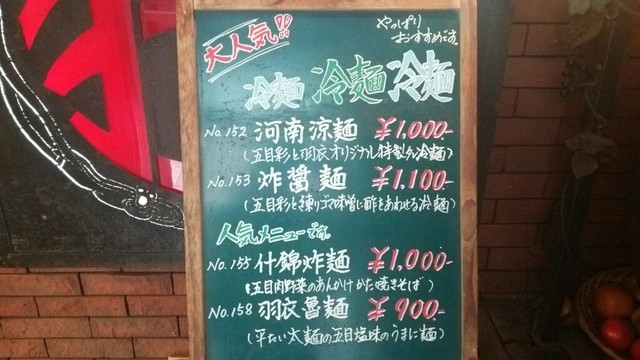 大人気!!
やっぱり
おすすめです。
冷麺 冷麺 冷麺
No.152 河南涼麺 ¥1,000-
(五目彩と羽衣オリジナル特製ダレ冷麺)
No.153 炸醤麺 ¥1,100-
(五目彩と練りゴマ味噌に酢をあわせる冷麺)
人気メニューです。
No.155 什錦炸麺 ¥1,000-
(五目肉野菜のあんかけかた焼きそば)
No.158 羽衣魯麺 ¥900-
(平たい太麺の五目塩味のうまに麺)